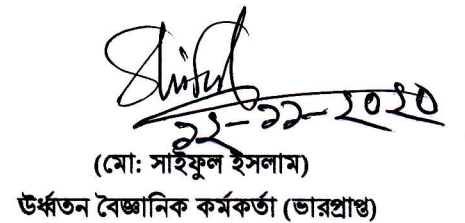 ১২-১১-২০২০
(মো: সাইফুল ইসলাম)
উর্ধ্বতন বৈজ্ঞানিক কর্মকর্তা (ভারপ্রাপ্ত)